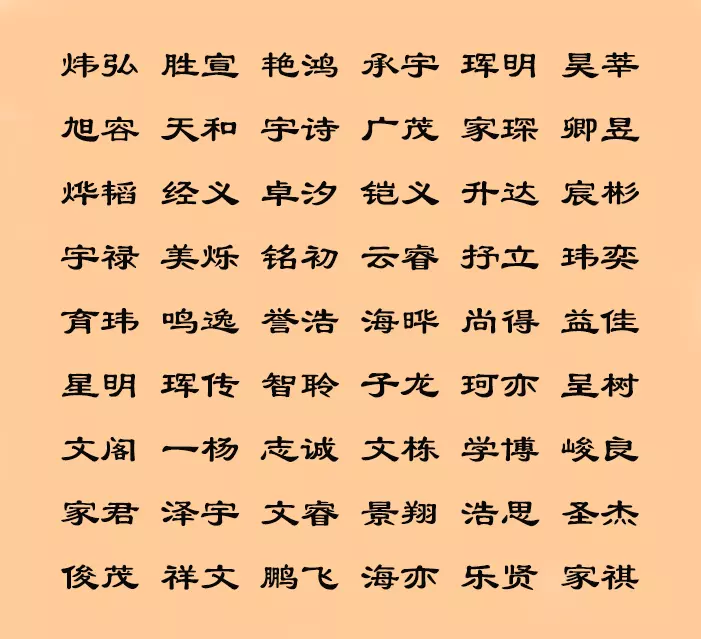 炜弘 胜宣 艳鸿 承宇 珲明 昊莘
旭容 天和 宇诗 广茂 家琛 卿昱
烨韬 经义 卓汐 铠义 升达 宸彬
宇禄 美烁 铭初 云睿 抒立 玮奕
育玮 鸣逸 誉浩 海晔 尚得 益佳
星明 珲传 智聆 子龙 珂亦 呈树
文阁 一杨 志诚 文栋 学博 峻良
家君 泽宇 文睿 景翔 浩思 圣杰
俊茂 祥文 鹏飞 海亦 乐贤 家祺